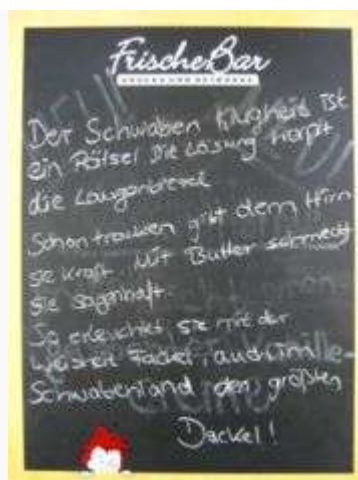 FrischeBar
SNACKS UND GETRÄNKE
Der Schwaben Klugheit ist
ein Rätsel Die Lösung heißt
die Laugenbrezel
Schon trocken gibt dem Hirn
sie Kraft. Mit Butter schmeckt
sie sagenhaft.
So erleuchtet sie mit der
Weisheit Fackel, auch im
Schwabenland den größten
Dackel!